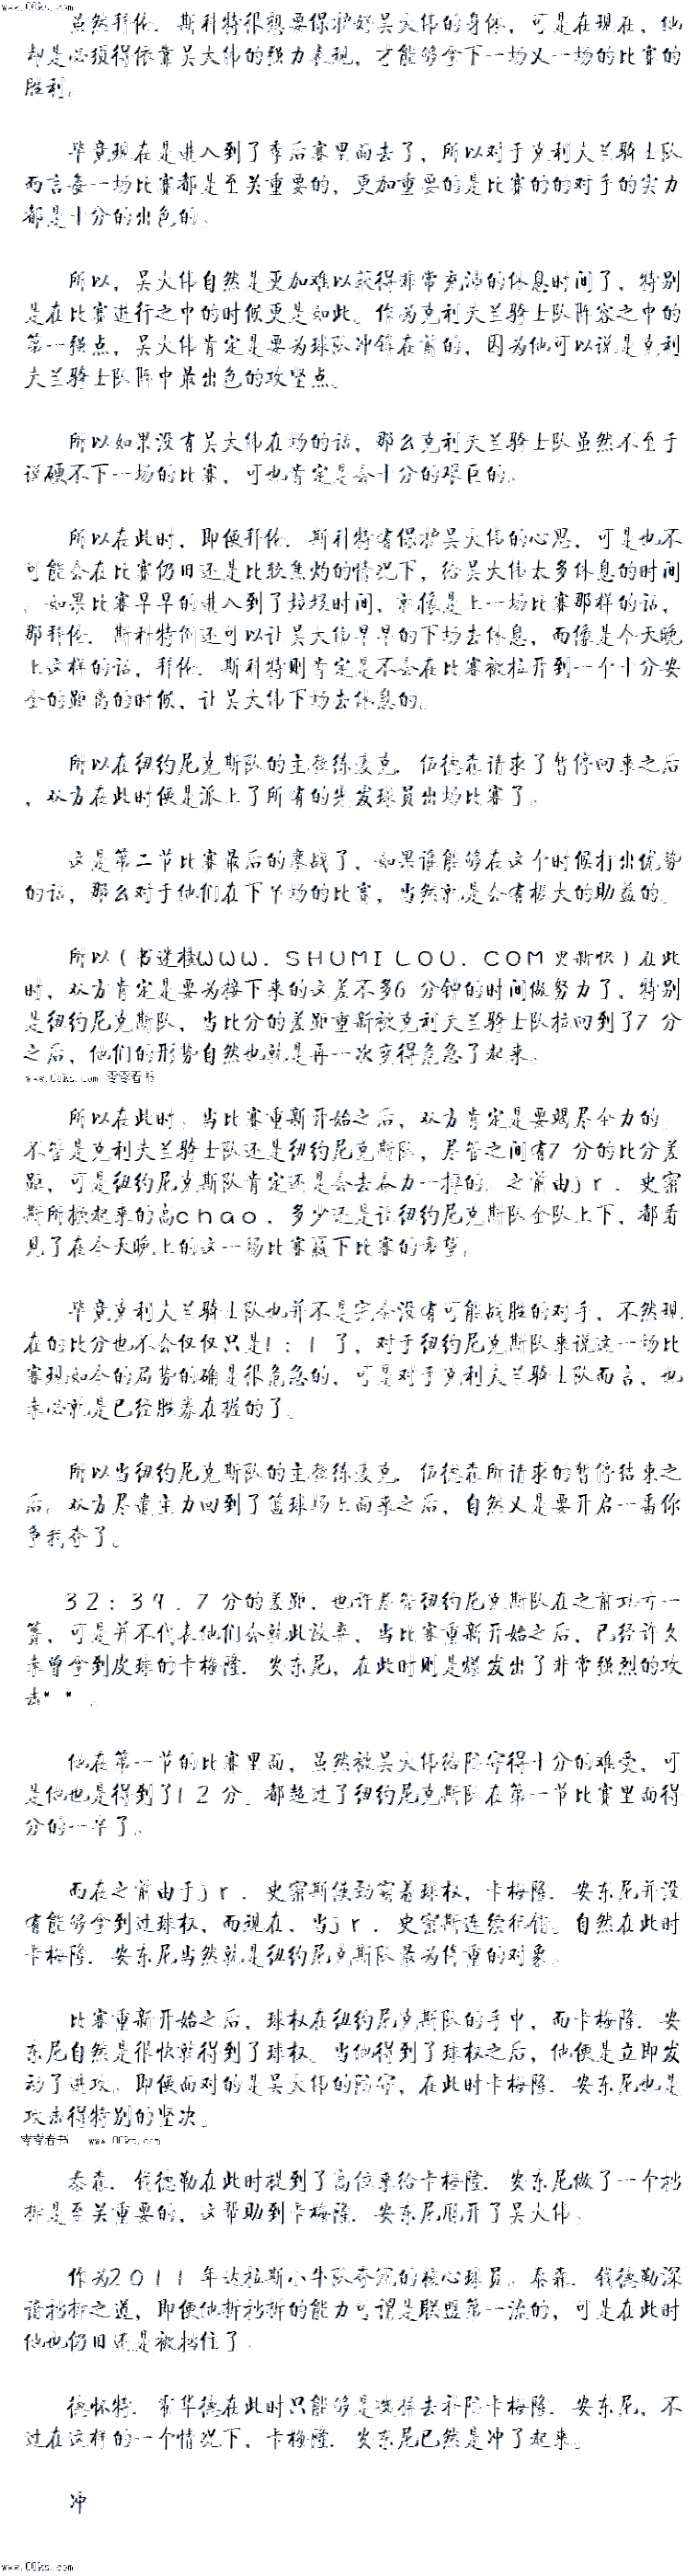 www.00ks.com
虽然拜伦．斯科特很想要保护好吴大伟的身体，可是在现在，他
却是必须得依靠吴大伟的强力表现，才能够拿下一场又一场的比赛的
胜利。
毕竟现在是进入到了季后赛里面去了，所以对于克利夫兰骑士队
而言每一场比赛都是至关重要的，更加重要的是比赛的的对手的实力
都是十分的出色的。
所以，吴大伟自然是更加难以获得非常充沛的休息时间了，特别
是在比赛进行之中的时候更是如此。作为克利夫兰骑士队阵容之中的
第一强点，吴大伟肯定是要为球队冲锋在前的，因为他可以说是克利
夫兰骑士队阵中最出色的攻坚点。
所以如果没有吴大伟在场的话，那么克利夫兰骑士队虽然不至于
说硬不下一场的比赛，可也肯定是会十分的艰巨的。
所以在此时，即便拜伦．斯科特有保护吴大伟的心思，可是也不
可能会在比赛仍旧还是比较焦灼的情况下，给吴大伟太多休息的时间
。如果比赛早早的进入到了垃圾时间，就像是上一场比赛那样的话，
那拜伦．斯科特倒还可以让吴大伟早早的下场去休息，而像是今天晚
上这样的话，拜伦．斯科特则肯定是不会在比赛被拉开到一个十分安
全的距离的时候，让吴大伟下场去休息的。
所以在纽约尼克斯队的主教练麦克．伍德森请求了暂停回来之后
，双方在此时便是派上了所有的先发球员出场比赛了。
这是第二节比赛最后的鏖战了，如果谁能够在这个时候打出优势
的话，那么对于他们在下半场的比赛，当然就是会有极大的助益的。
所以（书迷楼ＷＷＷ．ＳＨＵＭＩＬＯＵ．ＣＯＭ更新快）在此
时，双方肯定是要为接下来的这差不多6 分钟的时间做努力了，特别
是纽约尼克斯队，当比分的差距重新被克利夫兰骑士队拉回到了7 分
之后，他们的形势自然也就是再一次变得危急了起来。
www.00ks.com 零零看书
所以在此时，当比赛重新开始之后，双方肯定是要竭尽全力的，
不管是克利夫兰骑士队还是纽约尼克斯队，尽管之间有7 分的比分差
距，可是纽约尼克斯队肯定还是会去奋力一搏的。之前由ｊｒ．史密
斯所掀起来的高ｃｈａｏ，多少还是让纽约尼克斯队全队上下，都看
见了在今天晚上的这一场比赛赢下比赛的希望。
毕竟克利夫兰骑士队也并不是完全没有可能战胜的对手，不然现
在的比分也不会仅仅只是1：1 了，对于纽约尼克斯队来说这一场比
赛现如今的局势的确是很危急的，可是对于克利夫兰骑士队而言，也
未必就是已经胜券在握的了。
所以当纽约尼克斯队的主教练麦克．伍德森所请求的暂停结束之
后，双方尽遣主力回到了篮球场上面来之后，自然又是要开启一番你
争我夺了。
３２：３９．７ 分的差距，也许尽管纽约尼克斯队在之前功亏一
篑，可是并不代表他们会就此放弃，当比赛重新开始之后，已经许久
未曾拿到皮球的卡梅隆．安东尼，在此时则是爆发出了非常强烈的攻
击＊＊。
他在第一节的比赛里面，虽然被吴大伟给防守得十分的难受，可
是他也是得到了１２ 分，都超过了纽约尼克斯队在第一节比赛里面得
分的一半了。
而在之前由于ｊｒ．史密斯使劲霸着球权，卡梅隆．安东尼并没
有能够拿到过球权，而现在，当ｊｒ．史密斯连续犯错，自然在此时
卡梅隆．安东尼当然就是纽约尼克斯队最为倚重的对象。
比赛重新开始之后，球权在纽约尼克斯队的手中，而卡梅隆．安
东尼自然是很快就得到了球权。当他得到了球权之后，他便是立即发
动了进攻。即便面对的是吴大伟的防守，在此时卡梅隆．安东尼也是
攻击得特别的坚决。
零零看书 www.00ks.com
泰森．钱德勒在此时提到了高位来给卡梅隆．安东尼做了一个挡
拆是至关重要的，这帮助到卡梅隆．安东尼甩开了吴大伟。
作为２０１１ 年达拉斯小牛队夺冠的核心球员，泰森．钱德勒深
谙挡拆之道，即便他拆挡拆的能力可谓是联盟第一流的，可是在此时
他也仍旧还是被挡住了。
德怀特．霍华德在此时只能够是选择去补防卡梅隆．安东尼，不
过在这样的一个情况下，卡梅隆．安东尼已然是冲了起来。
冲
www.00ks.com